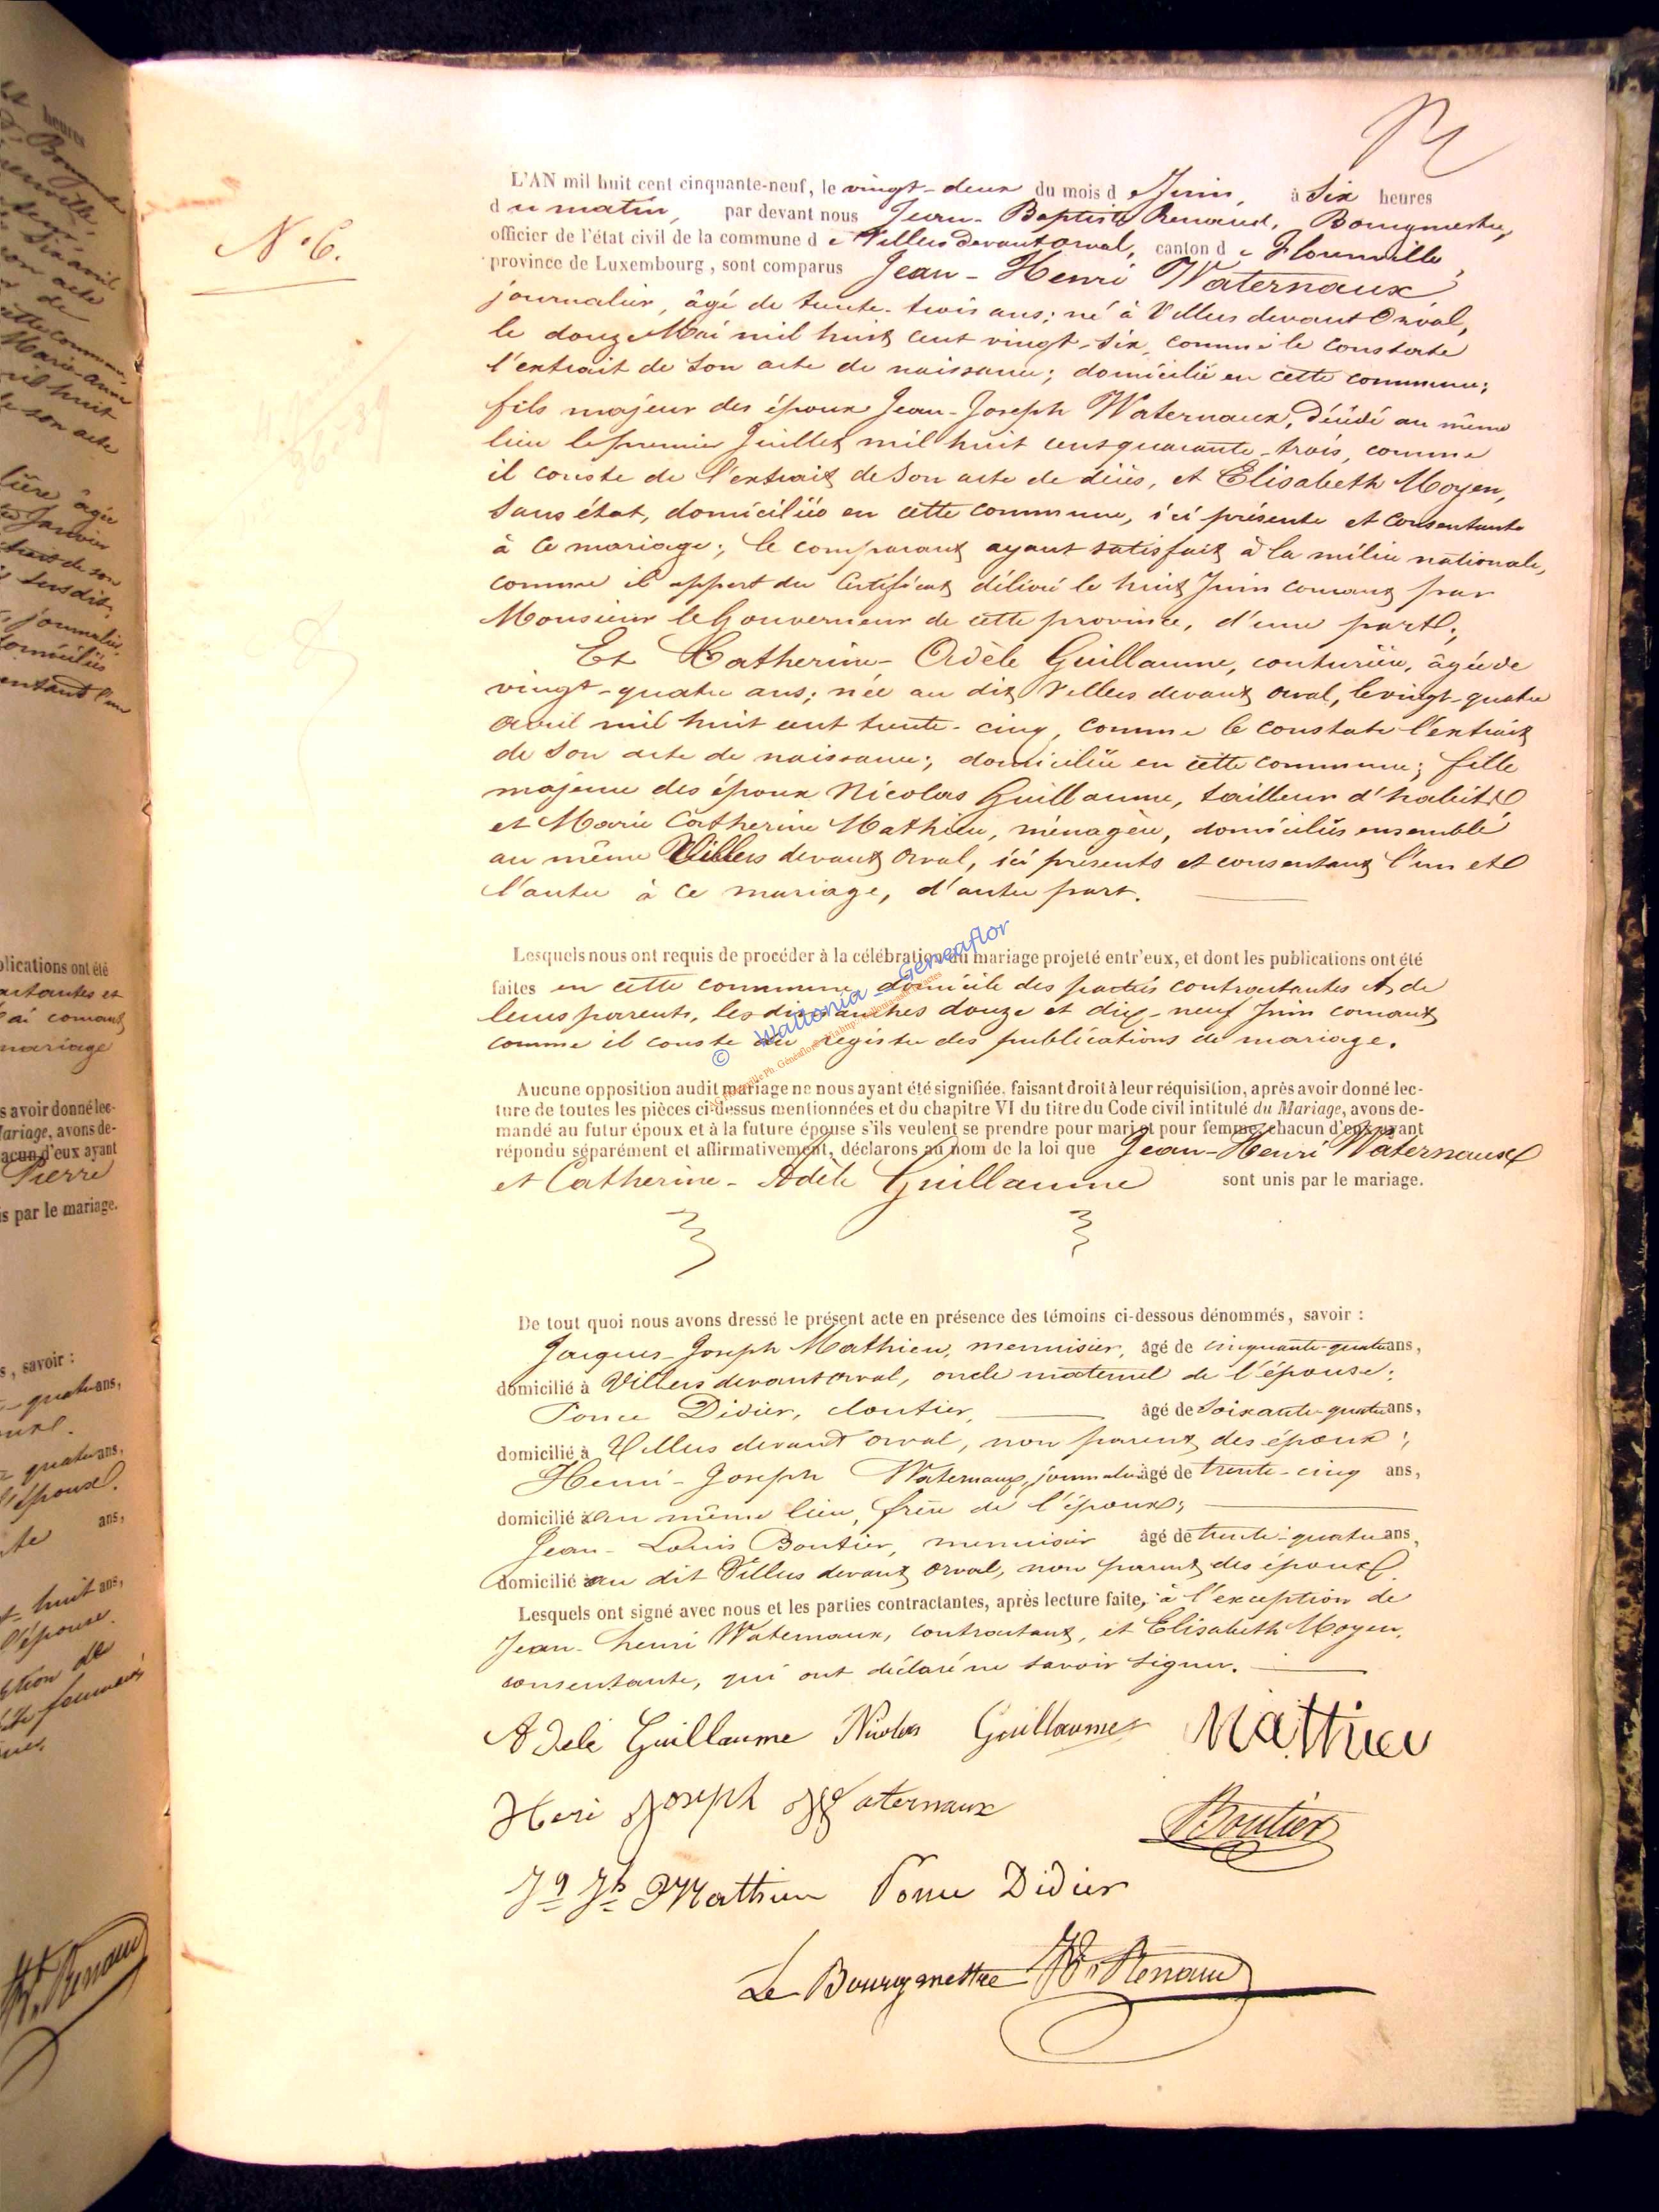 N° 6.
L'AN mil huit cent cinquante-neuf, le vingt-deux du mois de Juin, à Six heures
du matin, par devant nous Jean-Baptiste Renaud, Bourgmestre,
officier de l'état civil de la commune de Villers devant Orval, canton de Florenville,
province de Luxembourg, sont comparus Jean-Henri Waternaux,
journalier, âgé de trente-trois ans; né à Villers devant Orval,
le douze Mai mil huit cent vingt-six, comme le constate
l'extrait de son acte de naissance; domicilié en cette commune;
fils majeur des époux Jean-Joseph Waternaux, décédé au même
lieu le premier Juillet mil huit cent quarante-trois, comme
il conste de l'extrait de son acte de décès, et Elisabeth Moyen,
sans état, domiciliée en cette commune, ici présente et consentante
à ce mariage; le comparant ayant satisfait à la milice nationale,
comme il appert du Certificat délivré le huit Juin courant par
Monsieur le Gouverneur de cette province, d'une part;
Et Catherine-Adèle Guillaume, couturière, âgée de
vingt-quatre ans; née au dit Villers devant orval, le vingt-quatre
avril mil huit cent trente-cinq, comme le constate l'extrait
de son acte de naissance; domiciliée en cette commune; fille
majeure des époux Nicolas Guillaume, tailleur d'habits
et Marie Catherine Mathieu, ménagère, domiciliés ensemble
au même Villers devant orval, ici présents et consentant l'un et
l'autre à ce mariage, d'autre part.
Lesquels nous ont requis de procéder à la célébration du mariage projeté entr'eux, et dont les publications ont été
faites en cette commune, domicile des parties contractantes et de
leurs parents, les dimanches douze et dix-neuf Juin courant
comme il conste du registre des publications de mariage.
© Wallonia - Geneaflor
Aucune opposition audit mariage ne nous ayant été signifiée, faisant droit à leur réquisition, après avoir donné lec-
ture de toutes les pièces ci-dessus mentionnées et du chapitre VI du titre du Code civil intitulé du Mariage, avons de-
mandé au futur époux et à la future épouse s'ils veulent se prendre pour mari et pour femme; chacun d'eux ayant
répondu séparément et affirmativement, déclarons au nom de la loi que Jean-Henri Waternaux
et Catherine-Adèle Guillaume sont unis par le mariage.
De tout quoi nous avons dressé le présent acte en présence des témoins ci-dessous dénommés, savoir :
Jacques-Joseph Mathieu, menuisier, âgé de cinquante-quatre ans,
domicilié à Villers devant orval, oncle maternel de l'épouse;
Ponce Didier, cloutier, âgé de soixante-quatre ans,
domicilié à Villers devant orval, non parent des époux;
Henri-Joseph Waternaux, journalier âgé de trente-cinq ans,
domicilié au même lieu, frère de l'époux;
Jean-Louis Boutier, menuisier âgé de trente-quatre ans,
domicilié au dit Villers devant orval, non parent des époux.
Lesquels ont signé avec nous et les parties contractantes, après lecture faite, à l'exception de
Jean-henri Waternaux, contractant, et Elisabeth Moyen,
consentante, qui ont déclaré ne savoir signer.
Adele Guillaume Nicolas Guillaume Mathieu
Heri Joseph Waternaux Boutier
Jq Jh Mathieu Ponce Didier
Le Bourgmestre JB Renaud